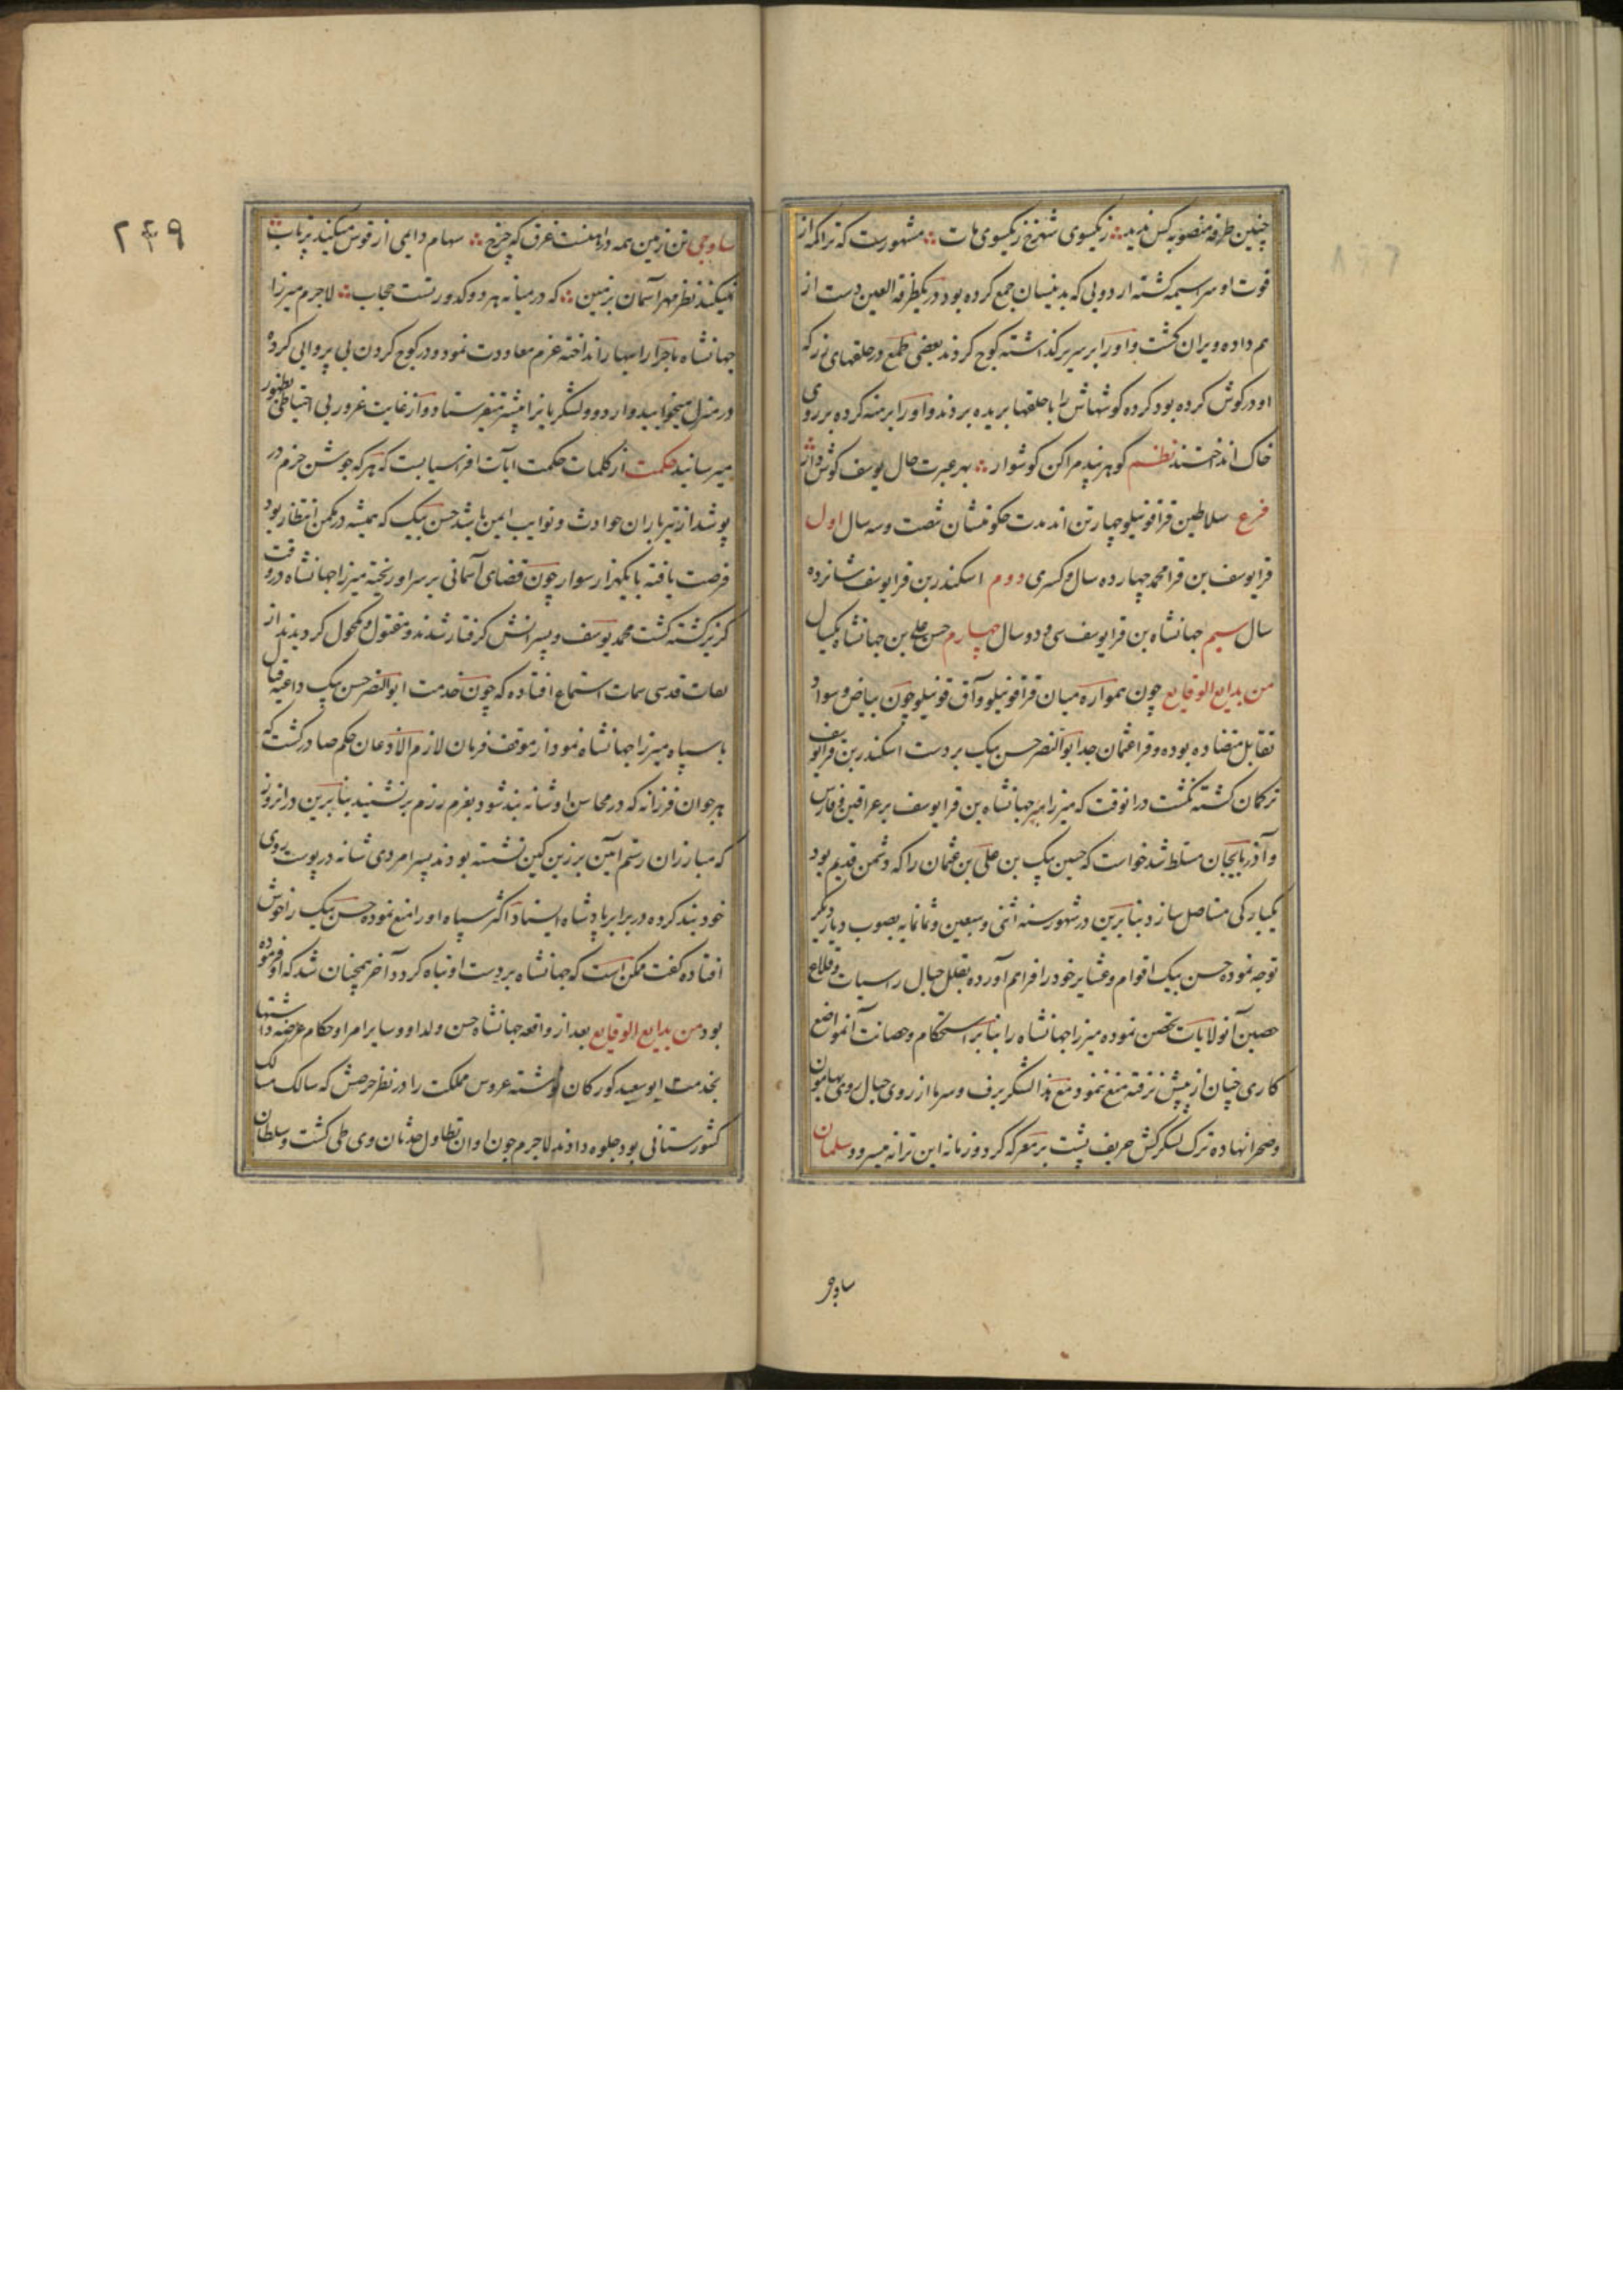 چنین طرفه منصوبه کس ندید ز یکسوی شهرخ ز یکسوی مات مشهورست که تراکمه از
فوت او سراسیمه گشته اردویی که بدینسان جمع کرده بود در یکطرفة العین دست از
هم داده ویران گشت و او را بر سریر گذاشته کوچ کردند بعضی طمع در حلقهای زر که
او در گوش کرده بود کرده گوشهاش را با حلقها بریده بردند و او را برهنه کرده بر روی
خاک انداختند نظم گوهر پند مرا کن گوشوار بهر عبرت حال یوسف گوش دار
فرع سلاطین قراقونیلو چهار تن اند مدت حکومتشان شصت و سه سال اول
قرا یوسف بن قرا محمد چهارده سال و کسری دوم اسکندر بن قرا یوسف شانزده
سال سیم جهانشاه بن قرا یوسف سی و دو سال چهارم حسن علی بن جهانشاه یکسال
من بدایع الوقایع چون همواره میان قراقونیلو و آق قونیلو چون بیاض و سواد
تقابل متضاده بوده و قرا عثمان جد ابو النصر حسن بیک بر دست اسکندر بن قرا یوسف
ترکمان کشته گشت در انوقت که میرزا جهانشاه بن قرا یوسف بر عراقین و فارس
و آذربایجان مسلط شد خواست که حسین بیک بن علی بن عثمان را که دشمن قدیم بود
یکبارگی مستاصل سازد بنا برین در شهور سنه اثنی و سبعین و ثمانمایه بصوب دیار بکر
توجه نموده حسن بیک اقوام و عشایر خود را فراهم آورده بقلل جبال راسیات و قلاع
حصین آنولایات تحصن نموده میرزا جهانشاه را بنا بر استحکام و حصانت آنمواضع
کاری چنان از پیش نرفته منع نمود و مع هذا لشکر برف و سرما از روی جبال روی بهامون
و صحرا نهاده ترک لشکرکش حریف پشت بر معرکه کرد و زمانه این ترانه میسرود سلمان
ساوجی
۲۴۹
ساوجی تن زمین همه در آهنست غرق که چرخ سهام دایمی از قوس میکند پرتاب
نمیکند نظر مهر آسمان بزمین که در میانه هر دو کدورتست حجاب لاجرم میرزا
جهانشاه ماجرا را سپهار انداخته عزم معاودت نمود و در کوچ کردن بی پروایی کرده
در منزل میخوابید و اردو و لشکریانرا پیشتر میفرستاد و از غایت غرور بی احتیاطی بظهور
میرسانید حکمت از کلمات حکمت آیات افراسیابست که هر که جوشن حزم در
پوشد از تیرباران حوادث و نوایب ایمن باشد حسن بیک که همیشه در مکمن انتظار بود
فرصت یافته با یکهزار سوار چون قضای آسمانی بر سر او ریخته میرزا جهانشاه در وقت
گریز کشته گشت محمد یوسف و پسرانش گرفتار شدند و مقتول و مکحول گردیدند از
ثقات قدسی سمات استماع افتاده که چون خدمت ابو النصر حسن بیک داعیه قتال
با سپاه میرزا جهانشاه نمود از موقف فرمان لازم الاذعان حکم صادر گشت که
هر جوان فرزانه که در محاسن او شانه بند شود بعزم رزم بر نشیند بنا برین در انروز
که مبارزان رستم آیین بر زین کین نشسته بودند پسر امردی شانه در پوست روی
خود بند کرده در برابر پادشاه ایستاد اکثر سپاه او را منع نموده حسن بیک را خوش
افتاده گفت ممکن است که جهانشاه بر دست او تباه گردد آخر همچنان شد که او فرموده
بود من بدایع الوقایع بعد از واقعه جهانشاه حسن ولد او و سایر امرا و حکام عرضه داشتها
بخدمت ابو سعید کورکان نوشته عروس مملکت را در نظر حرصش که سالک مسالک
کشورستانی بود جلوه دادند لاجرم چون اوان تطاول حدثان وی طی گشت و سلطان